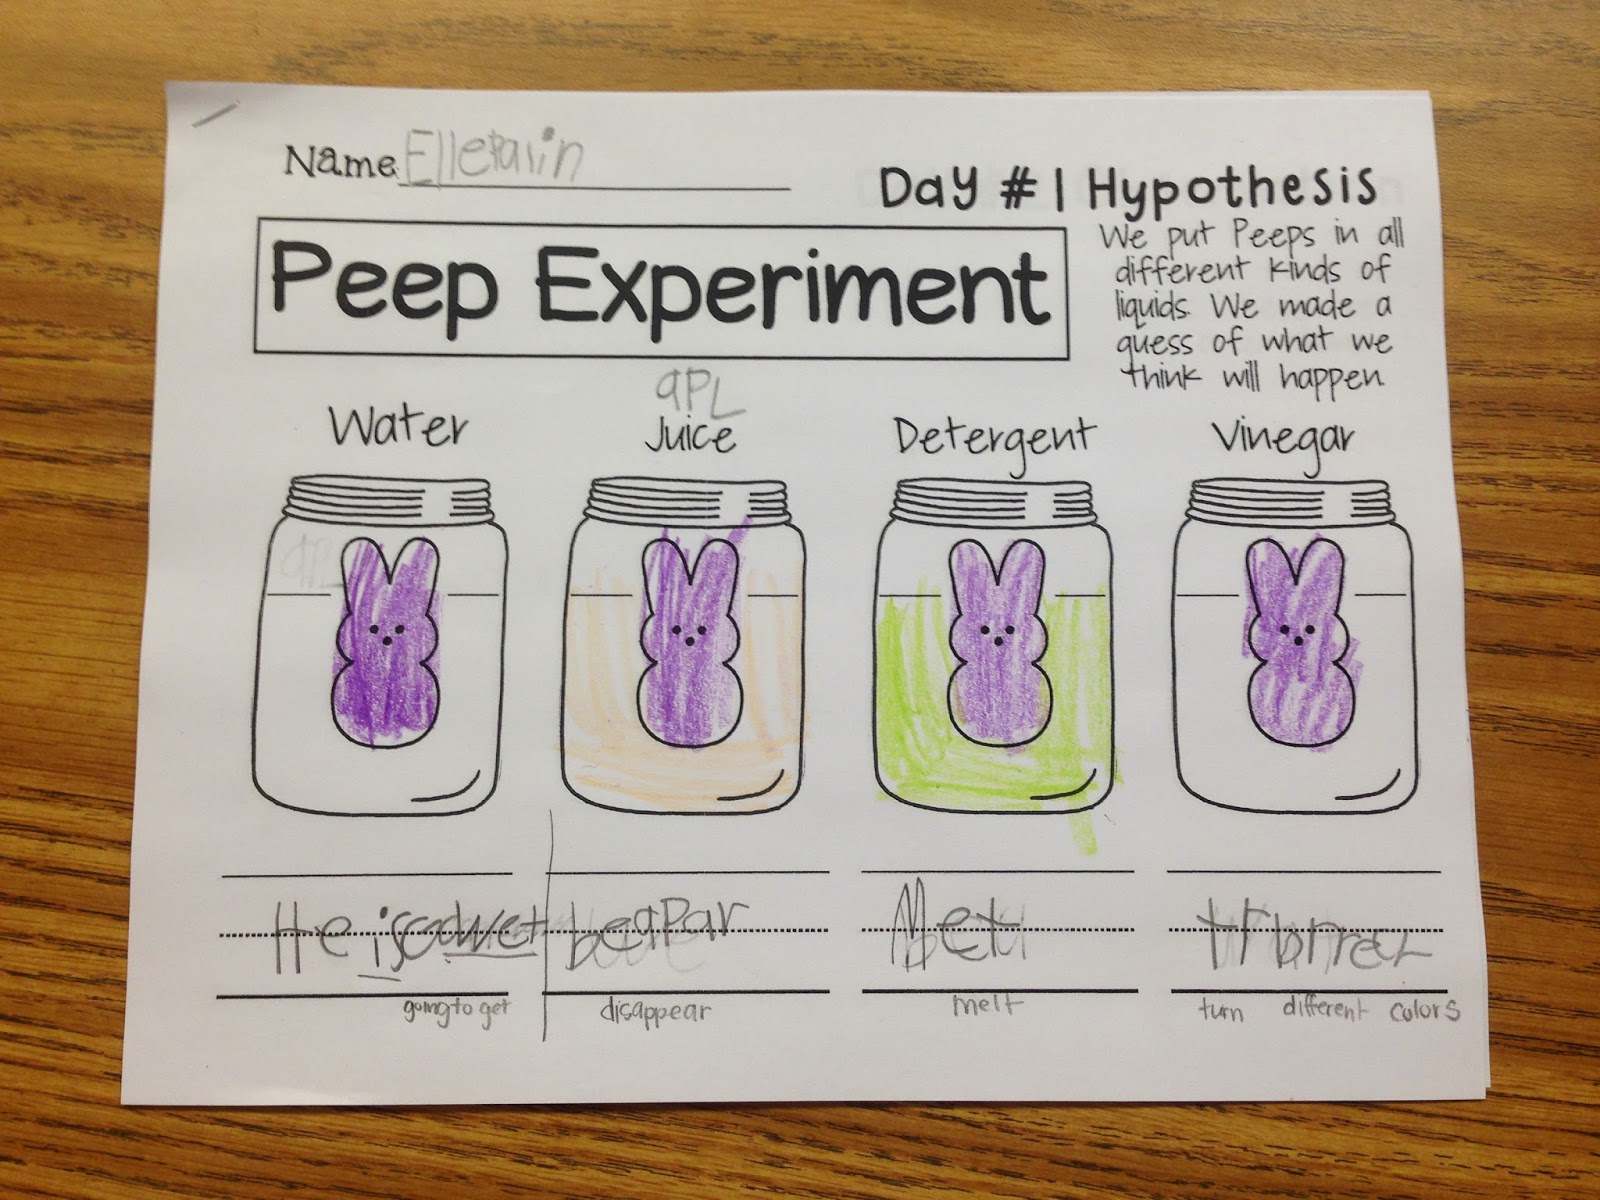 Name Ellepalin
Day #1 Hypothesis
Peep Experiment
We put Peeps in all
different kinds of
liquids. We made a
guess of what we
think will happen.
aPL
Water Juice Detergent Vinegar
aPL
He is
going to get disappear melt turn different colors